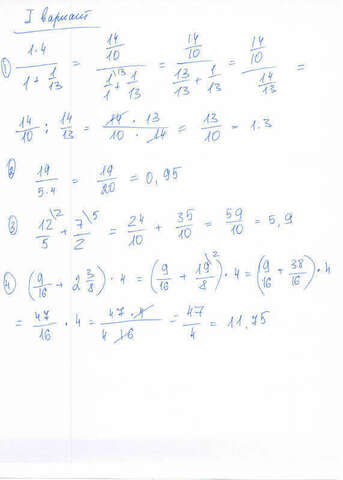 I вариант
① 1.4 / (1 + 1/13) = (14/10) / (1/1\13 + 1/13) = (14/10) / (13/13 + 1/13) = (14/10) / (14/13) =
14/10 : 14/13 = (14 · 13) / (10 · 14) = 13/10 = 1.3
② 19/5.4 = 19/20 = 0,95
③ 12/5\2 + 7/2\5 = 24/10 + 35/10 = 59/10 = 5,9
④ (9/16 + 2 3/8) · 4 = (9/16 + 19/8\2) · 4 = (9/16 + 38/16) · 4
= 47/16 · 4 = (47 · 4) / (4 16) = 47/4 = 11,75